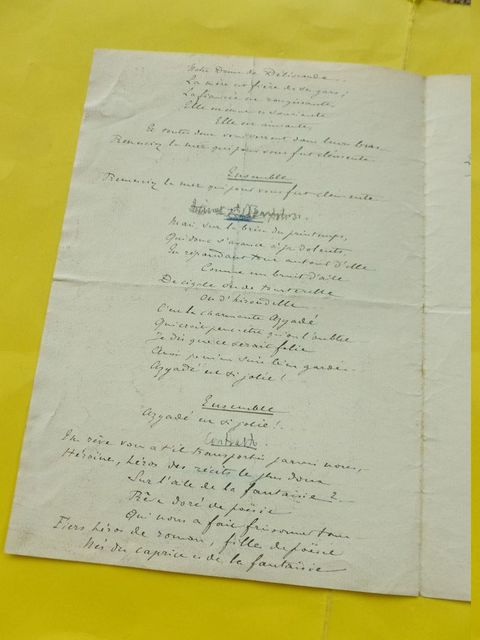 Notre Dame de Délivrande...
La mère est fière de son gars;
La fiancée en rougissant,
Elle
Elle est aimante,
Et toutes deux vous serrent dans leurs bras.
Remerciez la mer qui pour vous fut clémente
Ensemble
Remerciez la mer qui pour vous fut clémente
Mais, sur la brise du printemps,
Qui donc s'avance si
En répandant tout autour d'elle
Comme un bruit d'aile
De cigale ou de tourterelle
Ou d'hirondelle
C'est la charmante Azyadé
Qui croit peut-être qu'on l'oublie
Je dis que ce serait folie
Azyadé est si jolie!
Ensemble
Azyadé est si jolie!...
Un rêve vous a-t-il transportés parmi nous,
Héroïne, héros des récits le plus doux
Sur l'aile de la fantaisie?
Rêve doré de poésie
Qui nous a fait frissonner tous
Fiers héros de roman, fille de poésie
Nés du caprice et de la fantaisie